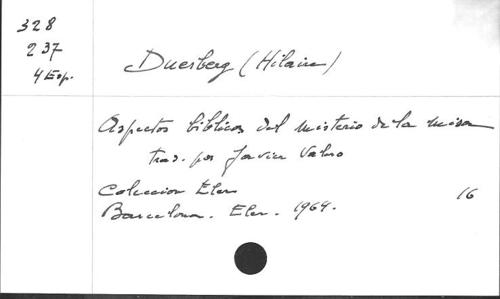 328
237
4 Esp.
Duesberg (Hilaire)
Aspectos biblicos del misterio de la misa
trad. por Javier Valero
Coleccion Eler 16
Barcelona. Eler. 1964.